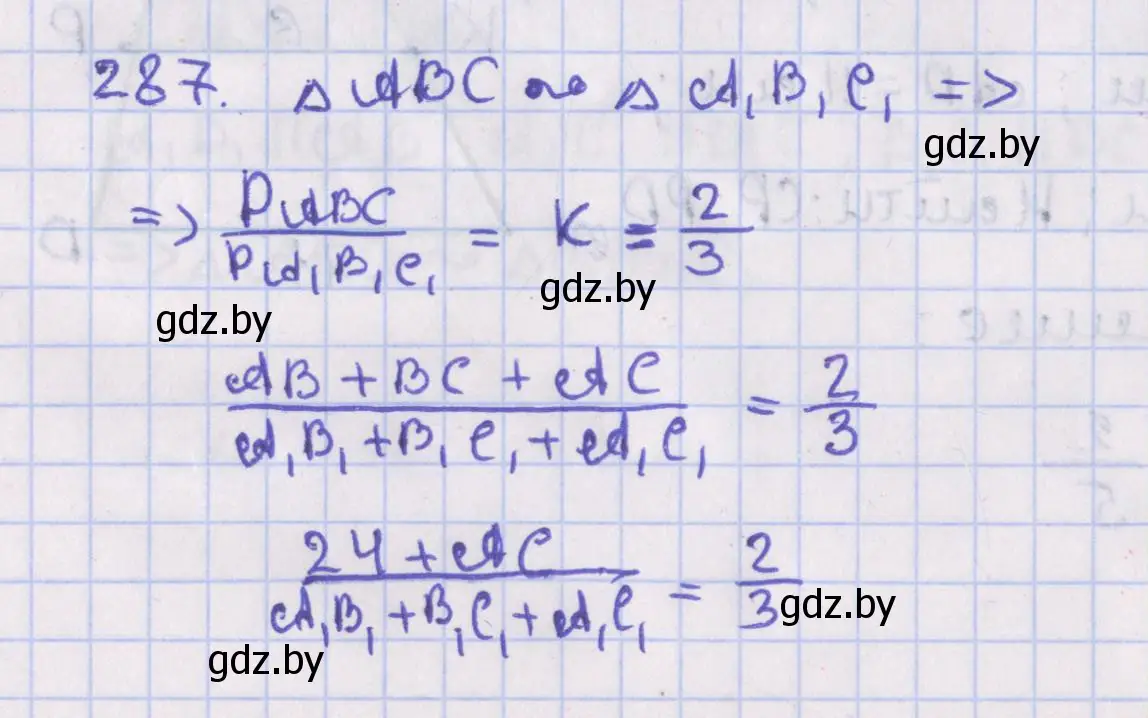 287. △ABC ∾ △A₁B₁C₁ =>
gdz.by
=> PABC / PA₁B₁C₁ = K = 2/3
gdz.by
gdz.by
AB + BC + AC / A₁B₁ + B₁C₁ + A₁C₁ = 2/3
24 + AC / A₁B₁ + B₁C₁ + A₁C₁ = 2/3
gdz.by
gdz.by